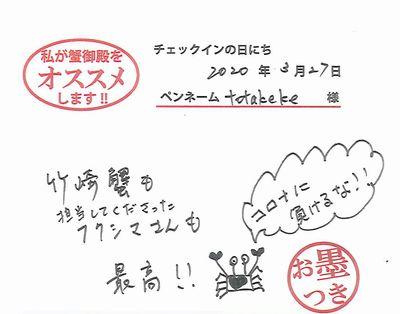 私が蟹御殿を
オススメ
します!!
チェックインの日にち
2020 年 3 月 27 日
ペンネーム totakeke 様
竹崎蟹も
担当してくださった
フクシマさんも
最高!!
コロナに
負けるな!!
お墨
つき